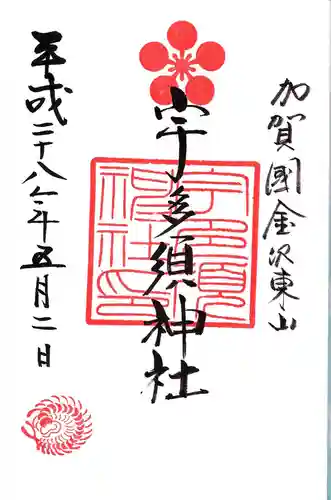 加賀國金沢東山
宇多須神社
宇多須神社印
平成二十八年五月二日